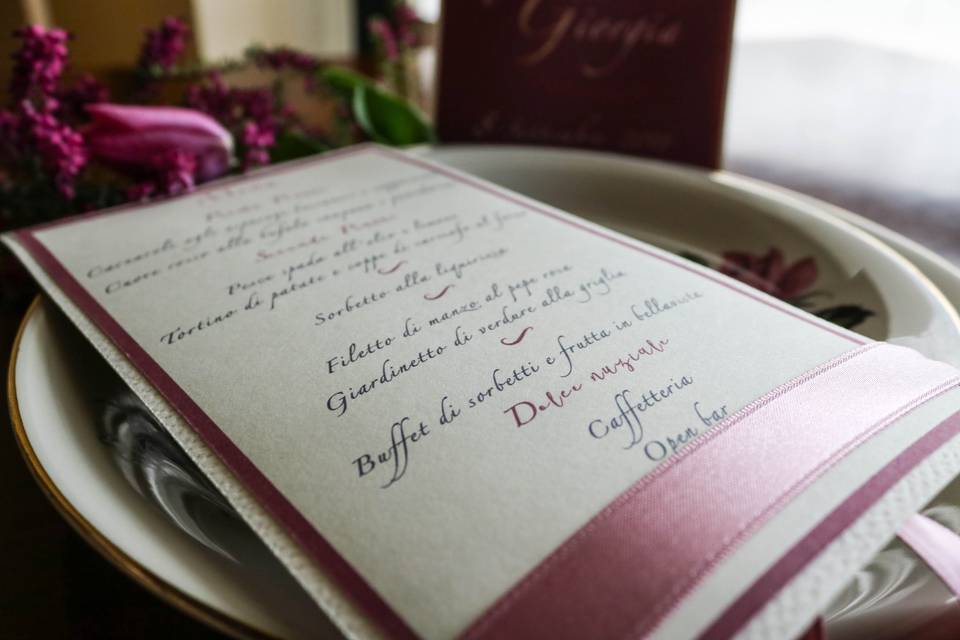 Giorgia
Menu
Primi Piatti
Carnaroli agli asparagi
Cuore rosso alla bufala campana e pomodorini
Secondi Piatti
Pesce spada all'olio e limone
Tortino di patate e cappe
Sorbetto alla liquirizia
Filetto di manzo al pepe rosa
Giardinetto di verdure alla griglia
Buffet di sorbetti e frutta in bellavista
Dolce nuziale
Caffetteria
Open bar